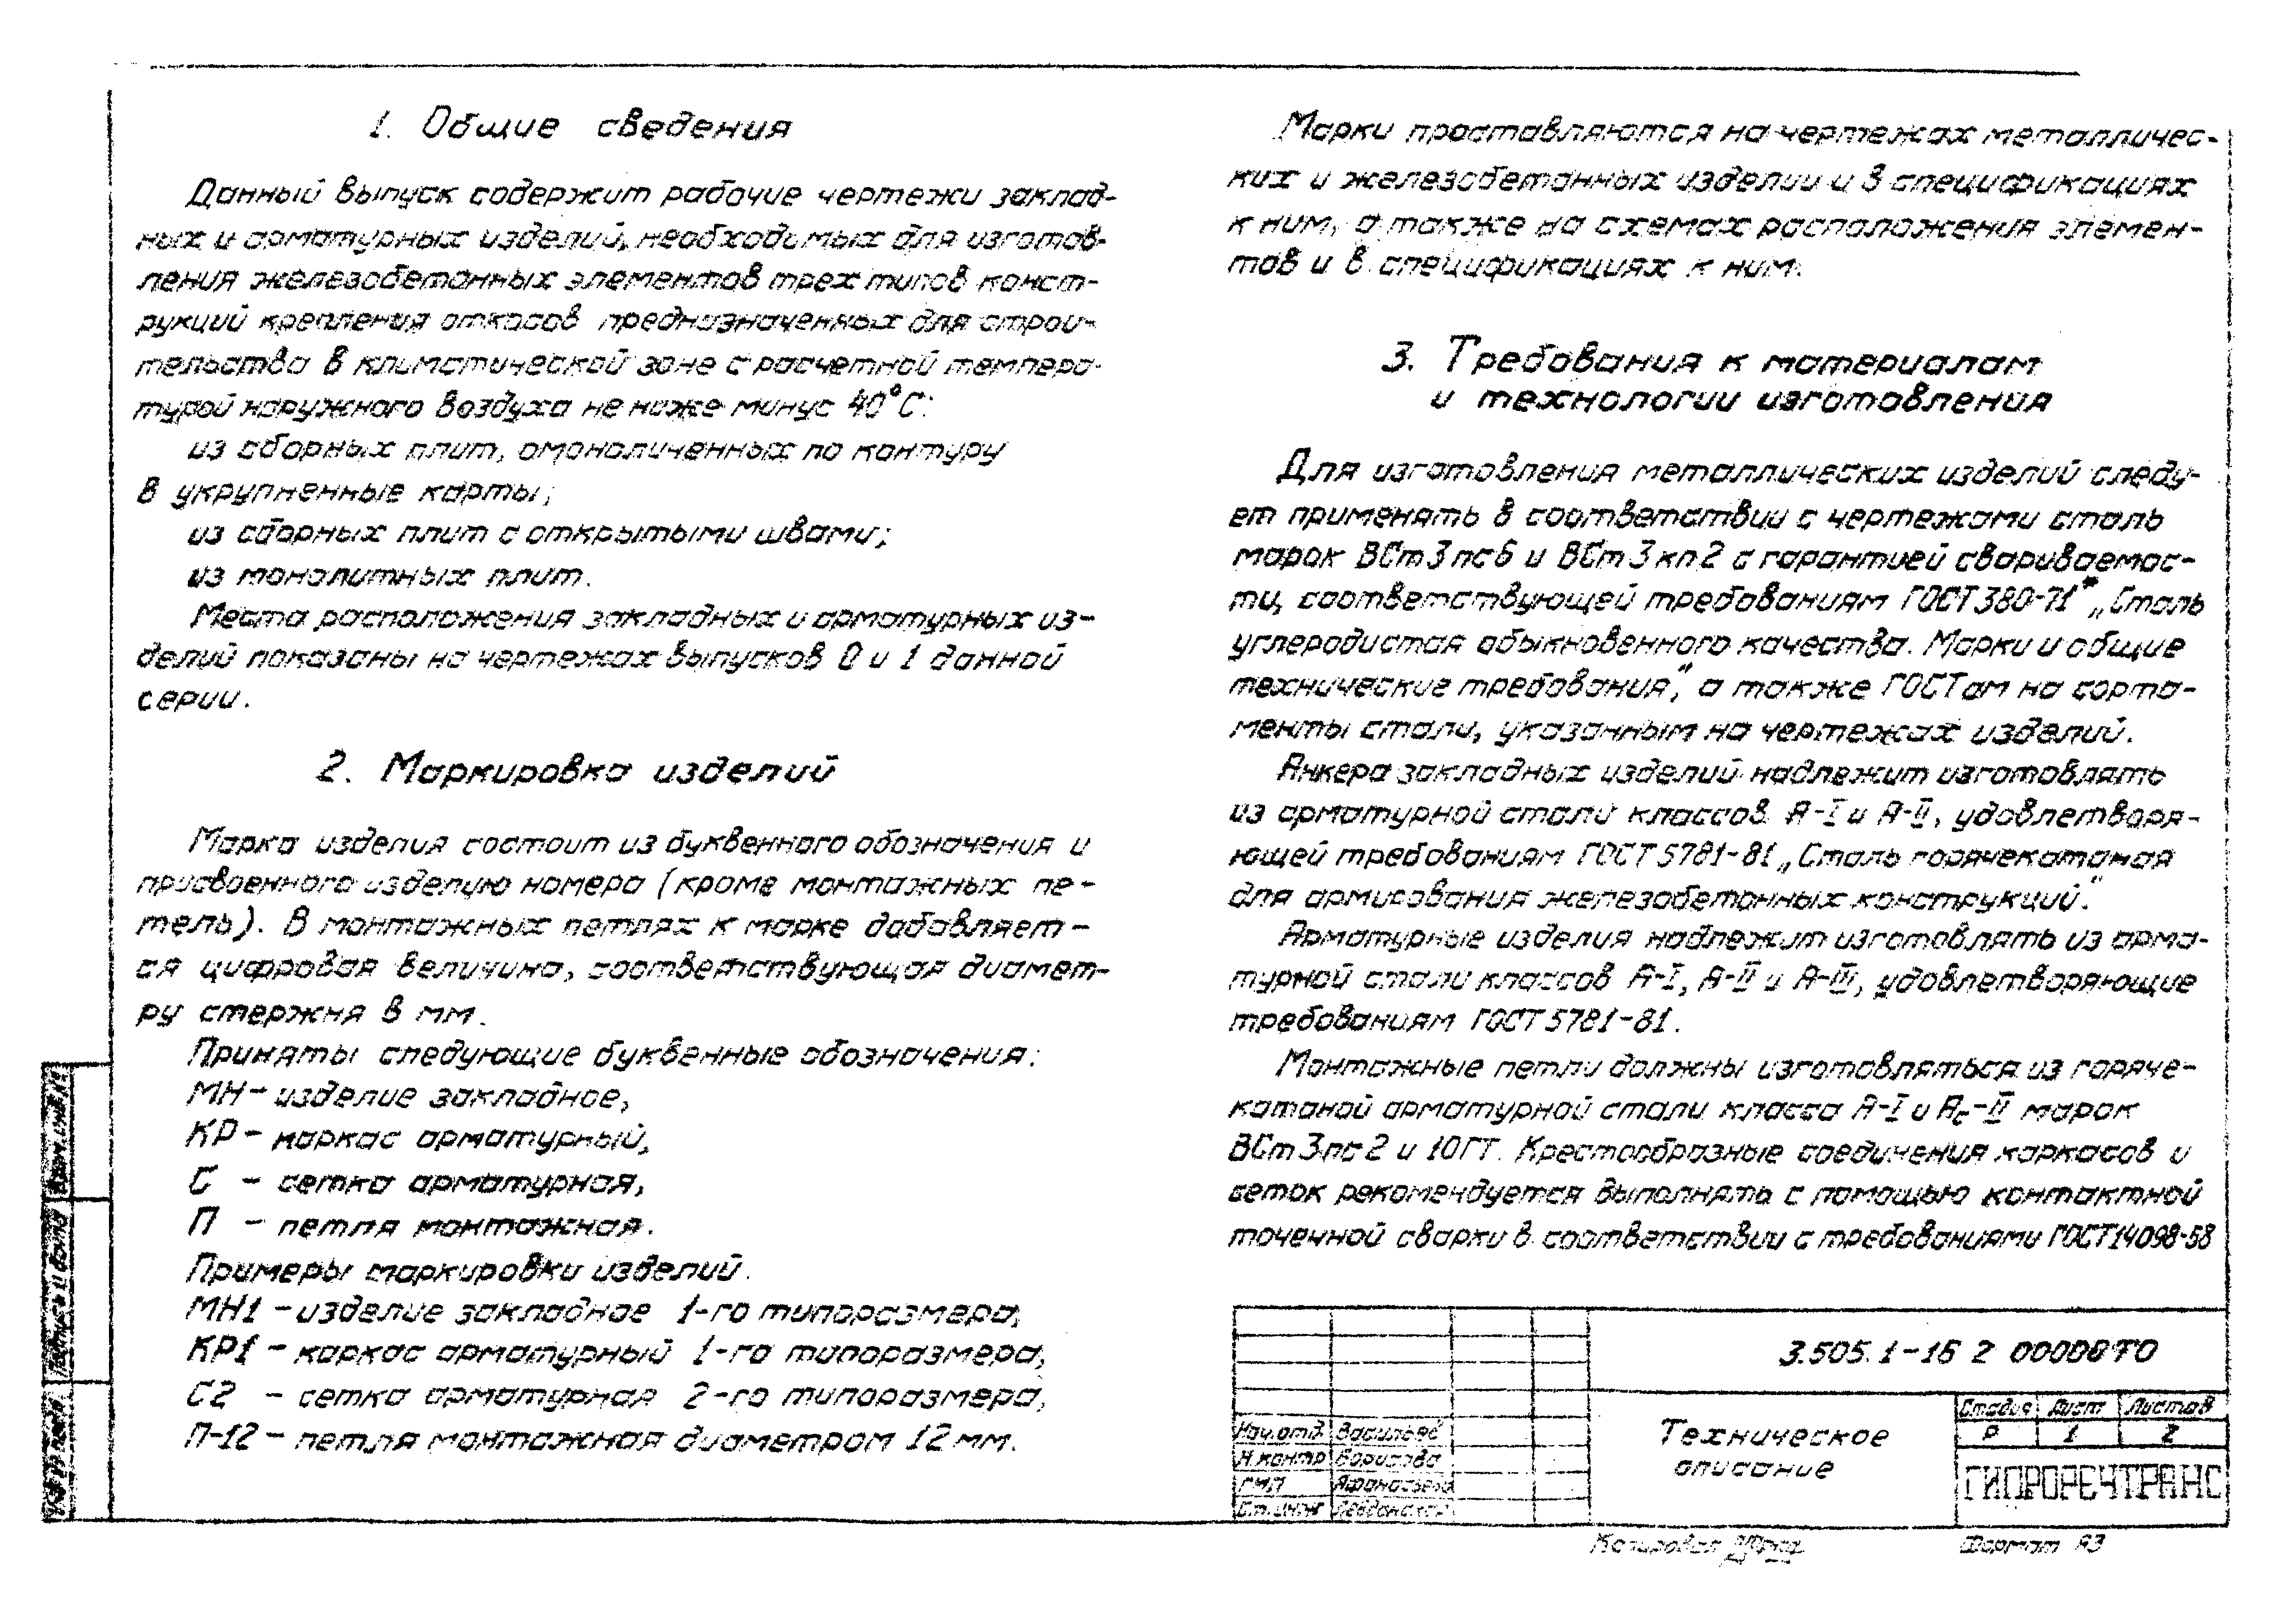 1. Общие сведения
Данный выпуск содержит рабочие чертежи заклад-
ных и арматурных изделий, необходимых для изготов-
ления железобетонных элементов трех типов конст-
рукций крепления откосов предназначенных для строи-
тельства в климатической зоне с расчетной темпера-
турой наружного воздуха не ниже минус 40°С:
из сборных плит, омоноличенных по контуру
в укрупненные карты;
из сборных плит с открытыми швами;
из монолитных плит.
Места расположения закладных и арматурных из-
делий показаны на чертежах выпусков 0 и 1 данной
серии.
2. Маркировка изделий
Марка изделия состоит из буквенного обозначения и
присвоенного изделию номера (кроме монтажных пе-
тель). В монтажных петлях к марке добавляет-
ся цифровая величина, соответствующая диамет-
ру стержня в мм.
Приняты следующие буквенные обозначения:
МН – изделие закладное,
КР – каркас арматурный,
С – сетка арматурная,
П – петля монтажная.
Примеры маркировки изделий.
МН1 – изделие закладное 1-го типоразмера,
КР1 – каркас арматурный 1-го типоразмера,
С2 – сетка арматурная 2-го типоразмера,
П-12 – петля монтажная диаметром 12 мм.
Марки проставляются на чертежах металличес-
ких и железобетонных изделий и в спецификациях
к ним, а также на схемах расположения элемен-
тов и в спецификациях к ним.
3. Требования к материалам
и технологии изготовления
Для изготовления металлических изделий следу-
ет применять в соответствии с чертежами сталь
марок ВСт3пс6 и ВСт3кп2 с гарантией свариваемос-
ти, соответствующей требованиям ГОСТ 380-71* „Сталь
углеродистая обыкновенного качества. Марки и общие
технические требования", а также ГОСТам на сорта-
менты стали, указанным на чертежах изделий.
Анкера закладных изделий надлежит изготовлять
из арматурной стали классов А-I и А-II, удовлетворя-
ющей требованиям ГОСТ 5781-81 „Сталь горячекатаная
для армирования железобетонных конструкций".
Арматурные изделия надлежит изготовлять из арма-
турной стали классов А-I, А-II и А-III, удовлетворяющие
требованиям ГОСТ 5781-81.
Монтажные петли должны изготовляться из горяче-
катаной арматурной стали класса А-I и Ас-II марок
ВСт3пс2 и 10ГТ. Крестообразные соединения каркасов и
сеток рекомендуется выполнять с помощью контактной
точечной сварки в соответствии с требованиями ГОСТ 14098-68
3.505.1-16 2 00000ТО
Техническое
описание
Стадия Лист Листов
Р 1 2
ГИПРОРЕЧТРАНС
Нач.отд. Васильев
Н.контр Борисова
ГИП Афанасьева
Ст.инж
Копировал
Формат А3
Взам.инв.№
Подпись и дата
Инв.№ подл.